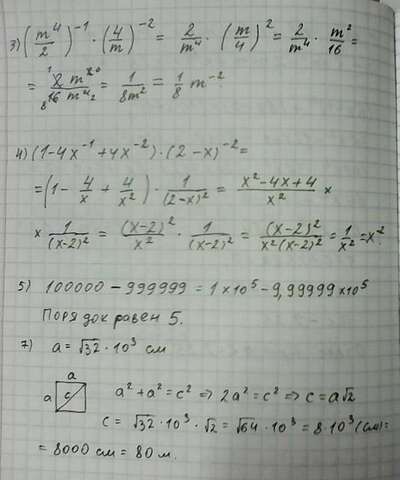 3) (m⁴/2)⁻¹ · (4/m)⁻² = 2/m⁴ · (m/4)² = 2/m⁴ · m²/16 =
= 2m²/16m⁴ = 1/8m² = 1/8 m⁻²
4) (1-4x⁻¹+4x⁻²)·(2-x)⁻² =
= (1 - 4/x + 4/x²) · 1/(2-x)² = x²-4x+4/x² ×
× 1/(x-2)² = (x-2)²/x² · 1/(x-2)² = (x-2)²/x²(x-2)² = 1/x² = x⁻².
5) 100000 - 999999 = 1×10⁵ - 9,99999×10⁵
Порядок равен 5.
7) a = √32 · 10³ см
a
a c
a² + a² = c² ⇒ 2a² = c² ⇒ c = a√2
c = √32 · 10³ · √2 = √64 · 10³ = 8·10³ (см) =
= 8000 см = 80 м.